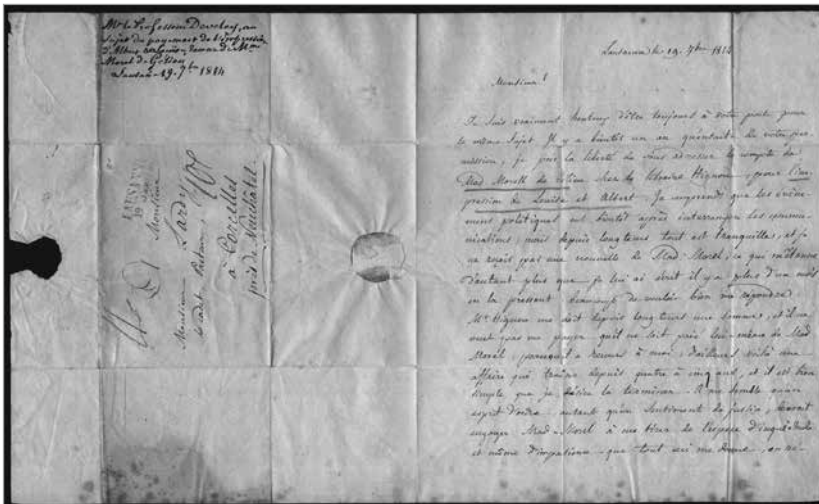 Mr le Professeur Develey, au
sujet du payement de l'impression
d'Albert et Louise, de Mme
Morel de Gélieu
Lausane 19. 7bre 1814
LAUSANNE
Monsieur
Monsieur Lardy
à Corcelles
près de Neuchâtel.
Lausanne le 19. 7bre 1814
Monsieur!
Je suis vraiment honteux d'être toujours à votre porte pour
le même sujet. Il y a bientôt un an qu'ensuite de votre per-
mission, je pris la liberté de vous adresser le compte de
Mad. Morell de Gélieu chez le libraire Hignou, pour l'im-
pression de Louise et Albert. Je comprends que les événe-
mens politiques ont bientôt après interrompu les commu-
nications; mais depuis longtems tout est tranquille, et je
ne reçois pas une nouvelle de Mad. Morel; ce qui m'étonne
d'autant plus que je lui ai écrit il y a plus d'un mois
en la pressant beaucoup de vouloir bien me répondre.
Mr Hignou me doit depuis longtems une somme, et il ne
veut pas me payer qu'il ne soit payé lui-même de Mad
Morel; personnel a recours à moi; d'ailleurs voilà une
affaire qui traîne depuis quatre à cinq ans, et il est bien
simple que je désire la terminer. Il me semble qu'un
esprit d'ordre autant qu'un sentiment de justice, devrait
engager Mad. Morel à me tirer de l'espèce d'inquiétude
et même d'impatience que tout ceci me donne, en